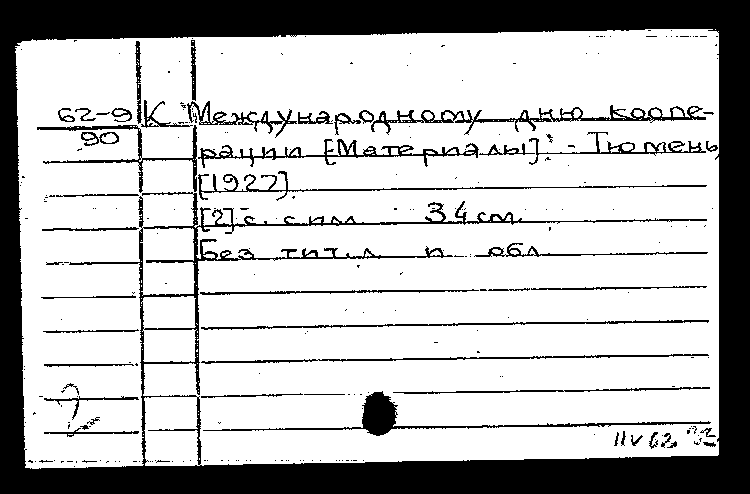 62-9 К Международному дню коопе-
90
рации [Материалы]. - Тюмень,
[1927].
[2] с. с илл. 34 см.
Без тит. л. и обл.
2
11 V 62